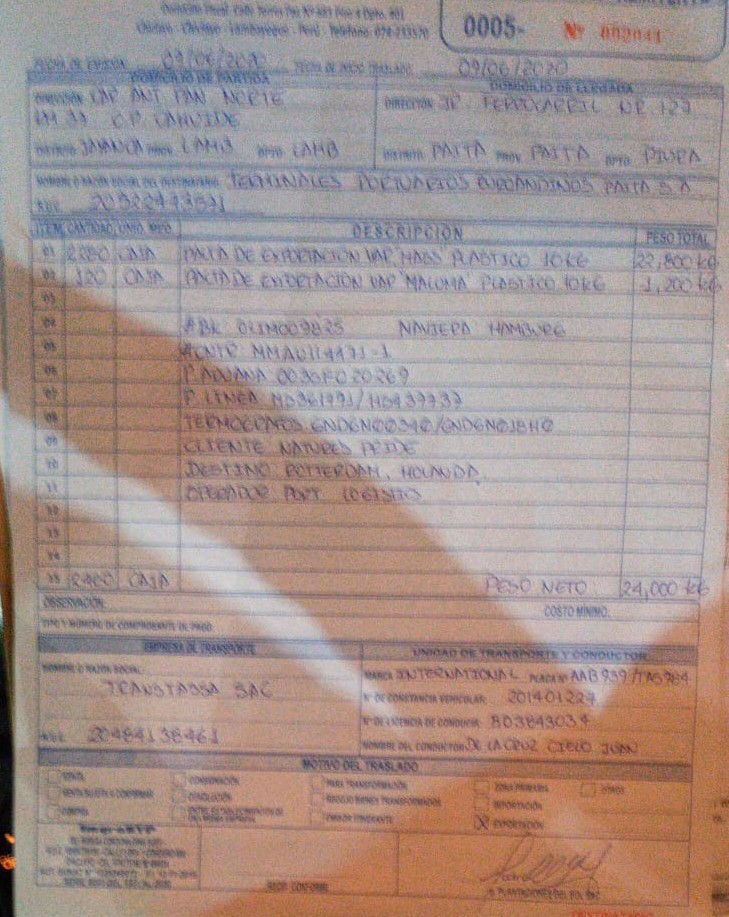 Domicilio Fiscal: Calle Torres Paz Nº Piso 4 Dpto. 401
Chiclayo - Chiclayo - Lambayeque - Perú - Teléfono: 074-233570
0005- Nº 003041
FECHA DE EMISIÓN: 09/06/2020 FECHA DE INICIO TRASLADO: 09/06/2020
DOMICILIO DE PARTIDA
DOMICILIO DE LLEGADA
DIRECCIÓN CAR. ANT. PAN NORTE
DIRECCIÓN JR FERROCARRIL NR. 127
KM 33 C.P. CAHUIDE
DISTRITO JAYANCA PROV. LAMB DPTO. LAMB
DISTRITO PAITA PROV. PAITA DPTO. PIURA
NOMBRE O RAZÓN SOCIAL DEL DESTINATARIO: TERMINALES PORTUARIOS EUROANDINOS PAITA S.A.
R.U.C. 20522473571
ITEM CANTIDAD UNID. MED. DESCRIPCION PESO TOTAL
01 2280 CAJA PALTA DE EXPORTACIÓN VAR "HASS" PLASTICO 10KG 22,800 KG
02 120 CAJA PALTA DE EXPORTACIÓN VAR "MALUMA" PLASTICO 10KG 1,200 KG
03
04 #BK NAVIERA HAMBURG
05 #CNTR MMAU114471-1
06 P. ADUANA
07 P. LINEA
08 TERMOGRAFOS
09 CLIENTE NATURES PRIDE
10 DESTINO ROTTERDAM, HOLANDA
11 OPERADOR PORT LOGISTIC
12
13
14
15 2400 CAJA PESO NETO 24,000 KG
OBSERVACIÓN: COSTO MÍNIMO:
TIPO Y NÚMERO DE COMPROBANTE DE PAGO:
EMPRESA DE TRANSPORTE
UNIDAD DE TRANSPORTE Y CONDUCTOR
NOMBRE O RAZÓN SOCIAL:
TRANSTASSA SAC
MARCA INTERNATIONAL PLACA Nº AAB 939/TAS984
Nº DE CONSTANCIA VEHICULAR: 201401227
Nº DE LICENCIA DE CONDUCIR: B03843034
R.U.C. 20484138461
NOMBRE DEL CONDUCTOR: DE LA CRUZ CIELO JUAN
MOTIVO DEL TRASLADO
VENTA
CONSIGNACIÓN
PARA TRANSFORMACIÓN
ZONA PRIMARIA
OTROS
VENTA SUJETA A CONFIRMAR
DEVOLUCIÓN
RECOJO BIENES TRANSFORMADOS
IMPORTACIÓN
COMPRA
ENTRE ESTABLECIMIENTOS DE
UNA MISMA EMPRESA
EMISOR ITINERANTE
X EXPORTACIÓN
RECIBÍ CONFORME
P. PLANTACIONES DEL SOL SAC